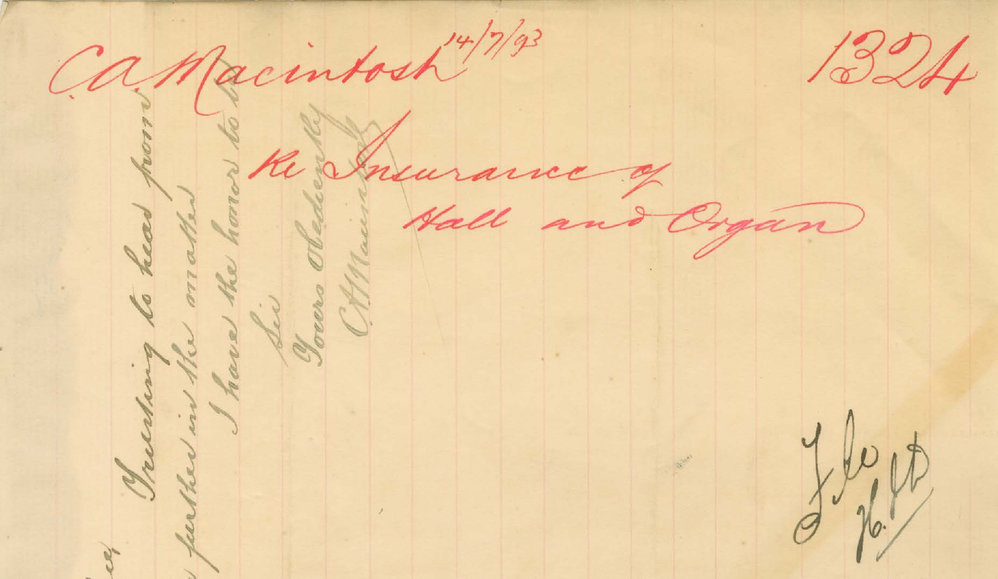 C. A. Macintosh 14/7/93
1324
Re Insurance of
Hall and Organ
Trusting to hear from
further in the matter
I have the honor to be
Sir
Yours obediently
C A Macintosh